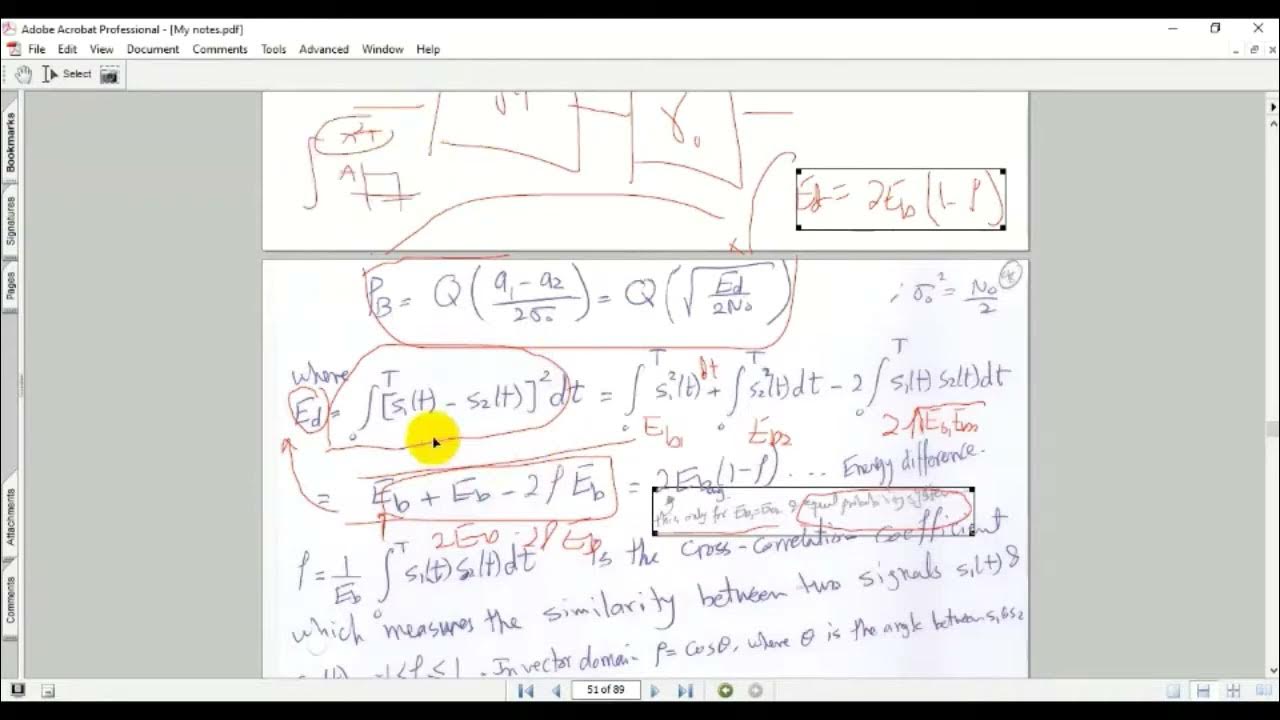 Adobe Acrobat Professional - [My notes.pdf]
File Edit View Document Comments Tools Advanced Window Help
Select
Bookmarks
Signatures
Pages
Attachments
Comments
x²T
A
γ₀
Ed = 2Eb (1-ρ)
P_B = Q((a₁ - a₂)/2σ₀) = Q(√(Ed/2N₀))
; σ₀² = N₀/2
where
Ed = ∫₀ᵀ [s₁(t) - s₂(t)]² dt = ∫₀ᵀ s₁²(t) dt + ∫₀ᵀ s₂²(t) dt - 2 ∫₀ᵀ s₁(t) s₂(t) dt
Eb₁ Eb₂ 2ρ√Eb₁Eb₂
= Eb + Eb - 2ρEb = 2Eb(1-ρ) ... Energy difference.
this only for Eb₁=Eb₂ & equal
2Eb - 2ρEb
ρ = 1/Eb ∫₀ᵀ s₁(t) s₂(t) dt is the cross-correlation coefficient
which measures the similarity between two signals s₁(t) &
-1 ≤ ρ ≤ 1. In vector domain ρ = cosθ, where θ is the angle between s₁ & s₂
51 of 89